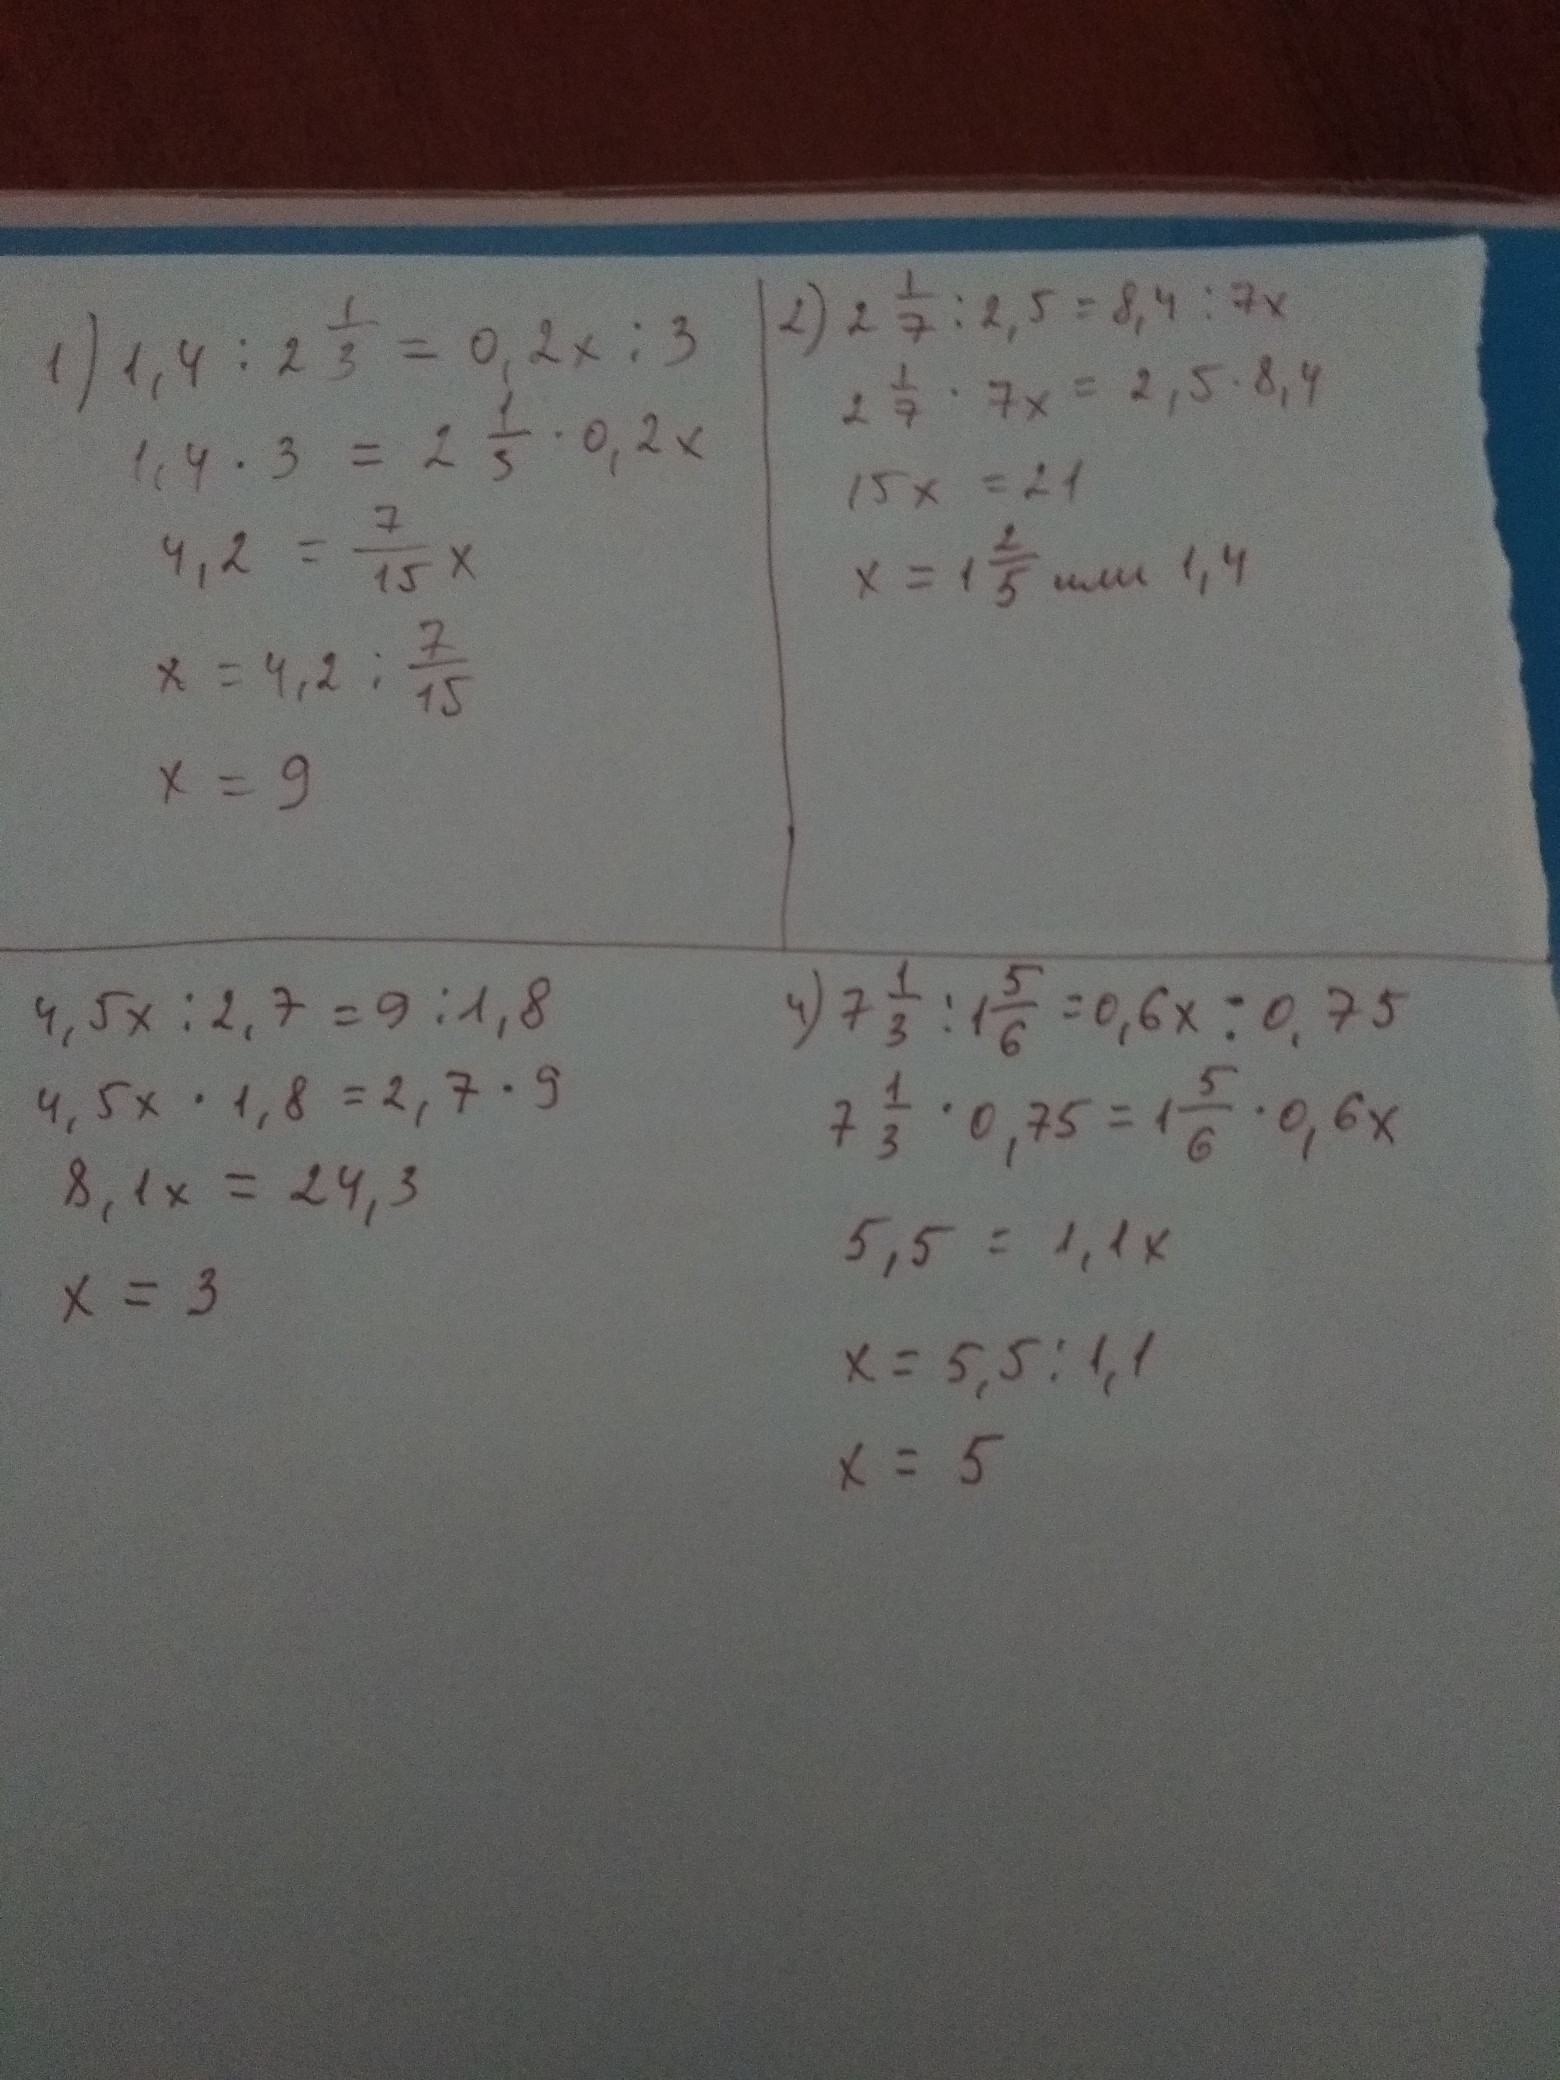 1) 1,4 : 2 1/3 = 0,2x : 3
1,4 · 3 = 2 1/3 · 0,2x
4,2 = 7/15 x
x = 4,2 : 7/15
x = 9
2) 2 1/7 : 2,5 = 8,4 : 7x
2 1/7 · 7x = 2,5 · 8,4
15x = 21
x = 1 2/5 или 1,4
4,5x : 2,7 = 9 : 1,8
4,5x · 1,8 = 2,7 · 9
8,1x = 24,3
x = 3
4) 7 1/3 : 1 5/6 = 0,6x : 0,75
7 1/3 · 0,75 = 1 5/6 · 0,6x
5,5 = 1,1x
x = 5,5 : 1,1
x = 5